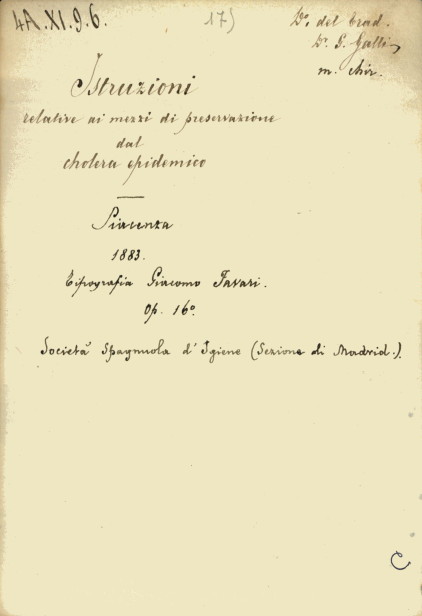 4A.XI.9.6.
17)
Do, del Trad.
Dr. G. Galli
m. chir.
Istruzioni
relative ai mezzi di preservazione
dal
cholera epidemico
Piacenza
1883.
Tipografia Giacomo Favari.
Op. 16º.
Società Spagnuola d'Igiene (Sezione di Madrid.).
C